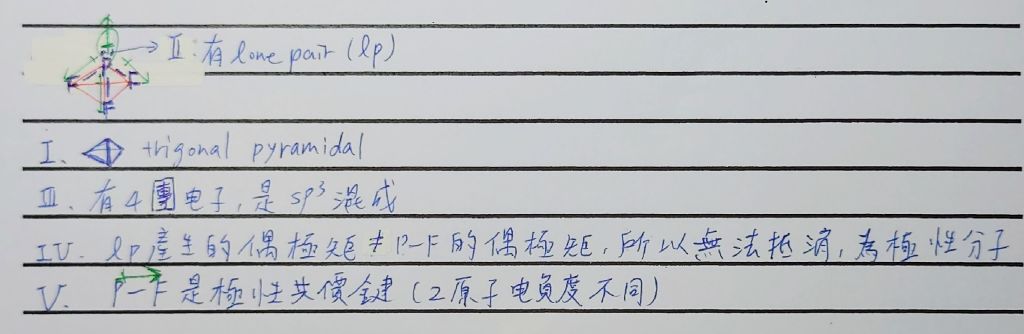 P
F F
F
→ II. 有 lone pair (lp)
I. trigonal pyramidal
III. 有4團电子, 是 sp³ 混成
IV. lp產生的偶極矩 ≠ P-F的偶極矩, 所以無法抵消, 為極性分子
V. P-F 是極性共價鍵 (2原子电負度不同)